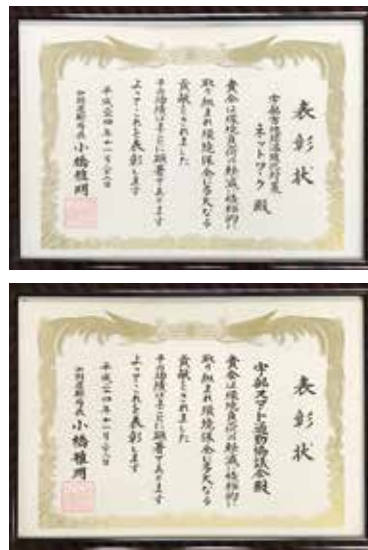 表彰状
宇部市地球温暖化対策
ネットワーク 殿
貴会は環境負荷の軽減に積極的に
取り組まれ環境保全に多大なる
貢献をされました
その功績はまことに顕著であります
よってこれを表彰します
平成二四年十一月
小橋雅明
表彰状
宇部スマート通勤協議会殿
貴会は環境負荷の軽減に積極的に
取り組まれ環境保全に多大なる
貢献をされました
その功績はまことに顕著であります
よってこれを表彰します
平成二四年十一月
小橋雅明